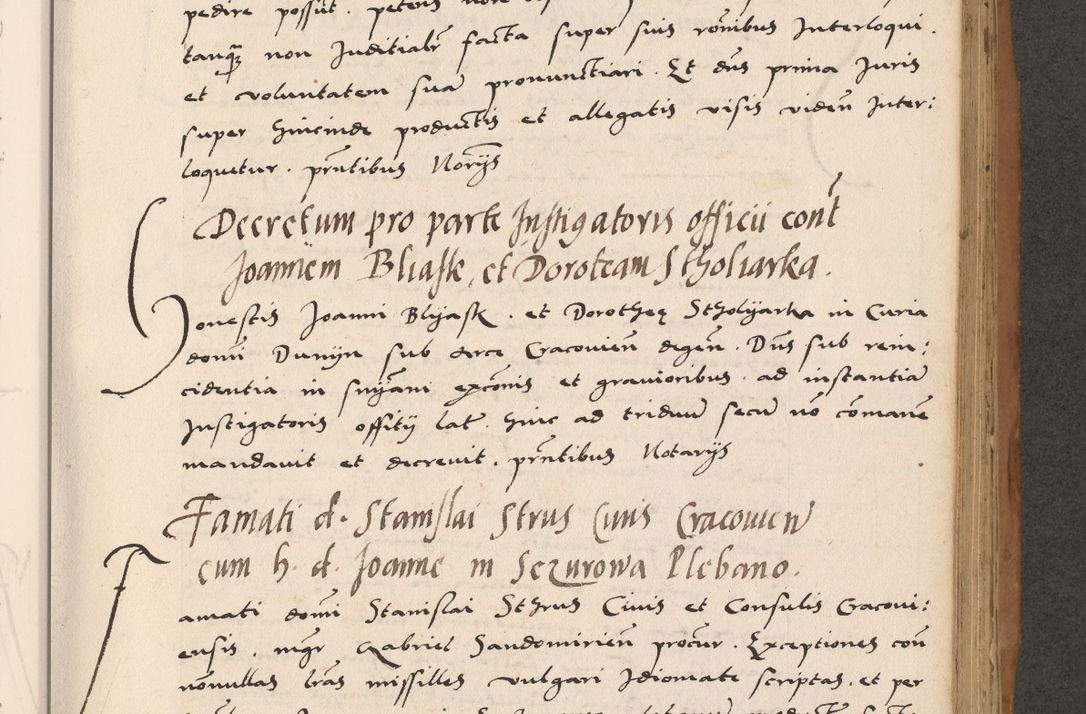 pedire possūt. petens
tanq̄ȝ non Juditialr̄ facta super suis ronībus Interloqui.
et voluntatem suā pronunctiari. Et dn̄s prima Juris
super hincinde productis et allegatis visis viden̄ Inter:
loquetur. prn̄tibus Norijs
Decretum pro parte Instigatoris officii cont̄
Joannem Bliask, et Doroteam Stholiarka.
Honestis Joanni Blyask. et Dorotheę Stholyarka in Curia
domī Dunijn sub arce Cracovien̄ degen̄. Dn̄s sub rein:
cidentia in snīam exc̄onis et gravioribus. ad instantiā
Instigatoris offitij lat̄. hinc ad triduū secū nō cōmanen̄
mandavit et decrevit. prn̄tibus Notarijs
Famati d. Stanislai Strus Civis Cracovien̄
cum h. d. Joanne in Sczurowa Plebano.
Famati domī Stanislai Sthrus Civis et Consulis Cracovi:
ensis. mgr̄ Gabriel Sandomirien̄ procur̄. Exceptiones con̄
nōnullas lrās missilles vulgari Idiomate scriptas. et per